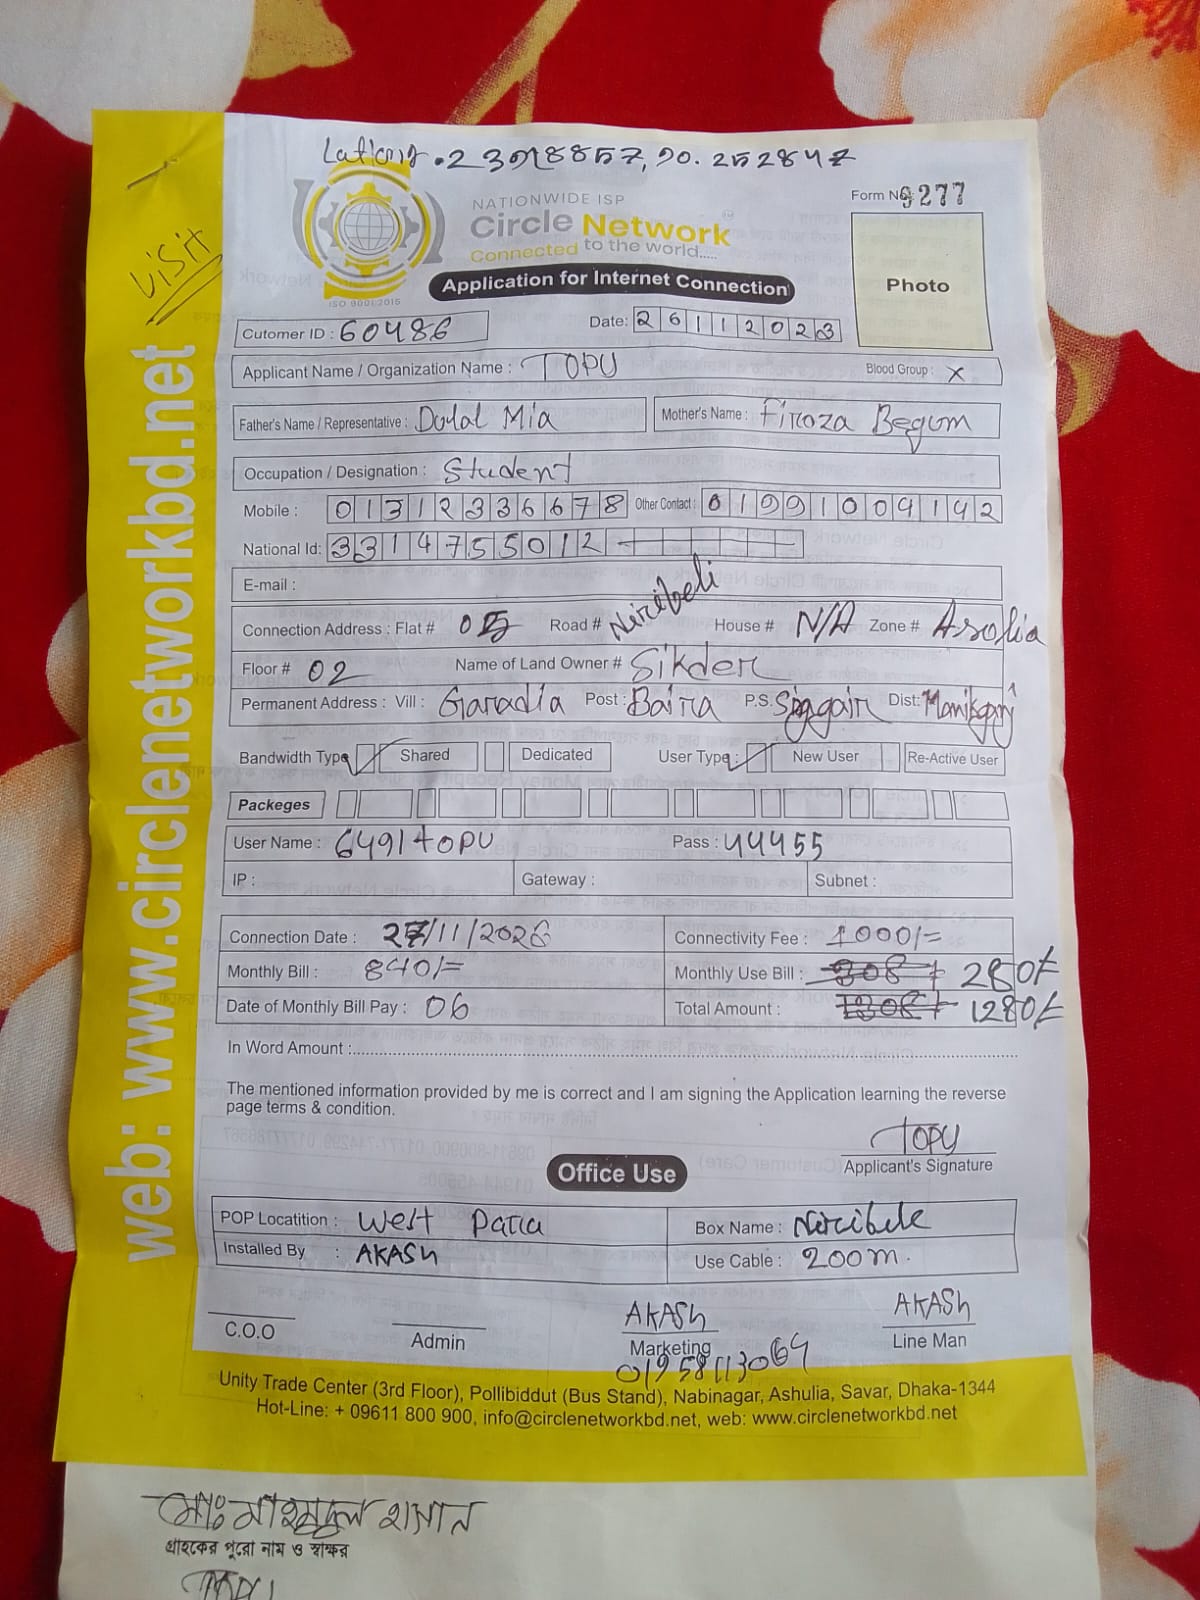 Lationg . 23918857, 90. 252847
NATIONWIDE ISP
Circle Network
Connected to the world.....
ISO 9001:2015
Form No: 9277
Photo
visit
Application for Internet Connection
Cutomer ID : 60486
Date: 26112023
Applicant Name / Organization Name : TOPU
Blood Group : X
Father's Name / Representative : Dulal Mia
Mother's Name : Firoza Begum
Occupation / Designation : Student
Mobile : 01312336678 Other Contact : 01991009142
National Id: 3314755012
E-mail :
Connection Address : Flat # 05 Road # Niribeli House # N/A Zone # Asolia
Floor # 02 Name of Land Owner # Sikder
Permanent Address : Vill : Garadia Post : Baira P.S. Singair Dist: Manikganj
Bandwidth Type : Shared Dedicated User Type : New User Re-Active User
Packeges
User Name : 6491topu Pass : 44455
IP : Gateway : Subnet :
Connection Date : 27/11/2023 Connectivity Fee : 1000/=
Monthly Bill : 840/= Monthly Use Bill : 308/- 280/-
Date of Monthly Bill Pay : 06 Total Amount : 1308/- 1280/-
In Word Amount :
The mentioned information provided by me is correct and I am signing the Application learning the reverse
page terms & condition.
TOPU
Applicant's Signature
Office Use
POP Locatition : West Para Box Name : Niribele
Installed By : AKASh Use Cable : 200m.
AKASh AKASh
C.O.O Admin Marketing Line Man
01958113064
Unity Trade Center (3rd Floor), Pollibiddut (Bus Stand), Nabinagar, Ashulia, Savar, Dhaka-1344
Hot-Line: + 09611 800 900, info@circlenetworkbd.net, web: www.circlenetworkbd.net
web: www.circlenetworkbd.net
মোঃ মাহমুদুল হাসান
গ্রাহকের পুরো নাম ও স্বাক্ষর
TOPU